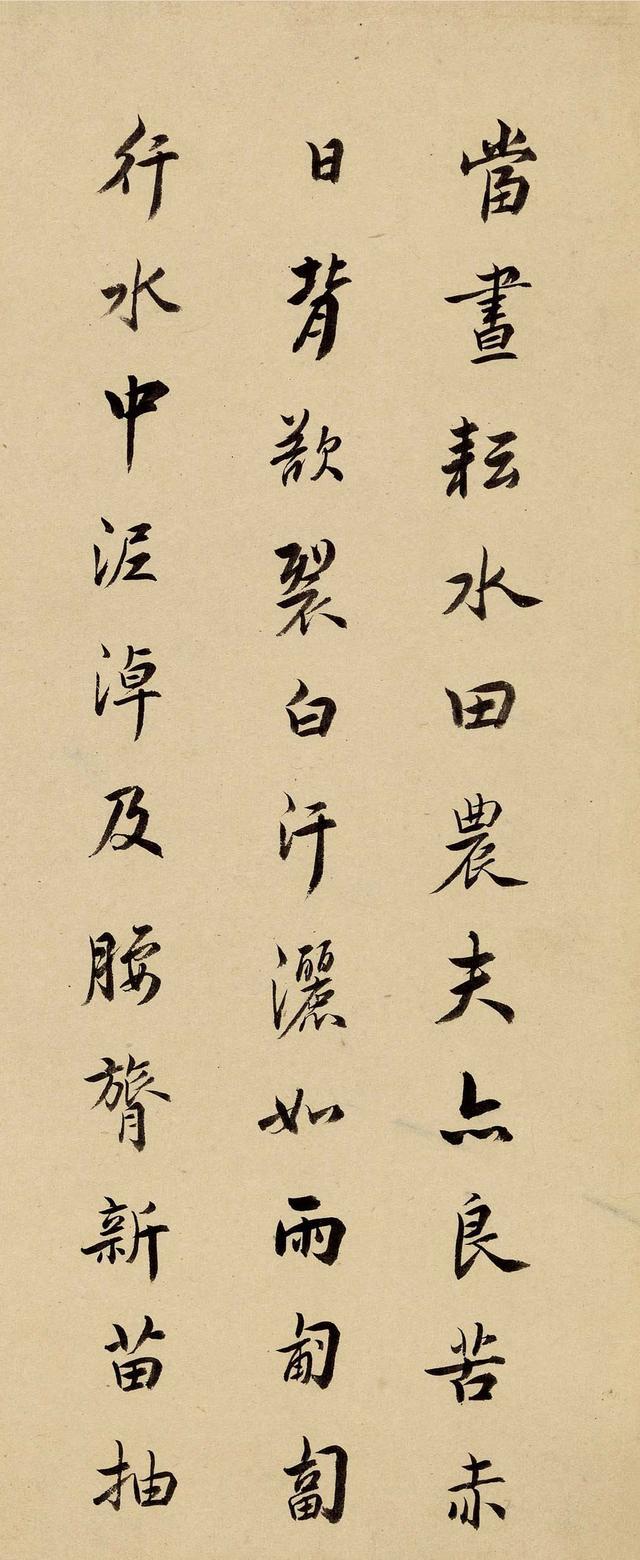 當晝耘水田農夫亦良苦赤
日背欲裂白汗灑如雨匍匐
行水中泥淖及腰膂新苗抽